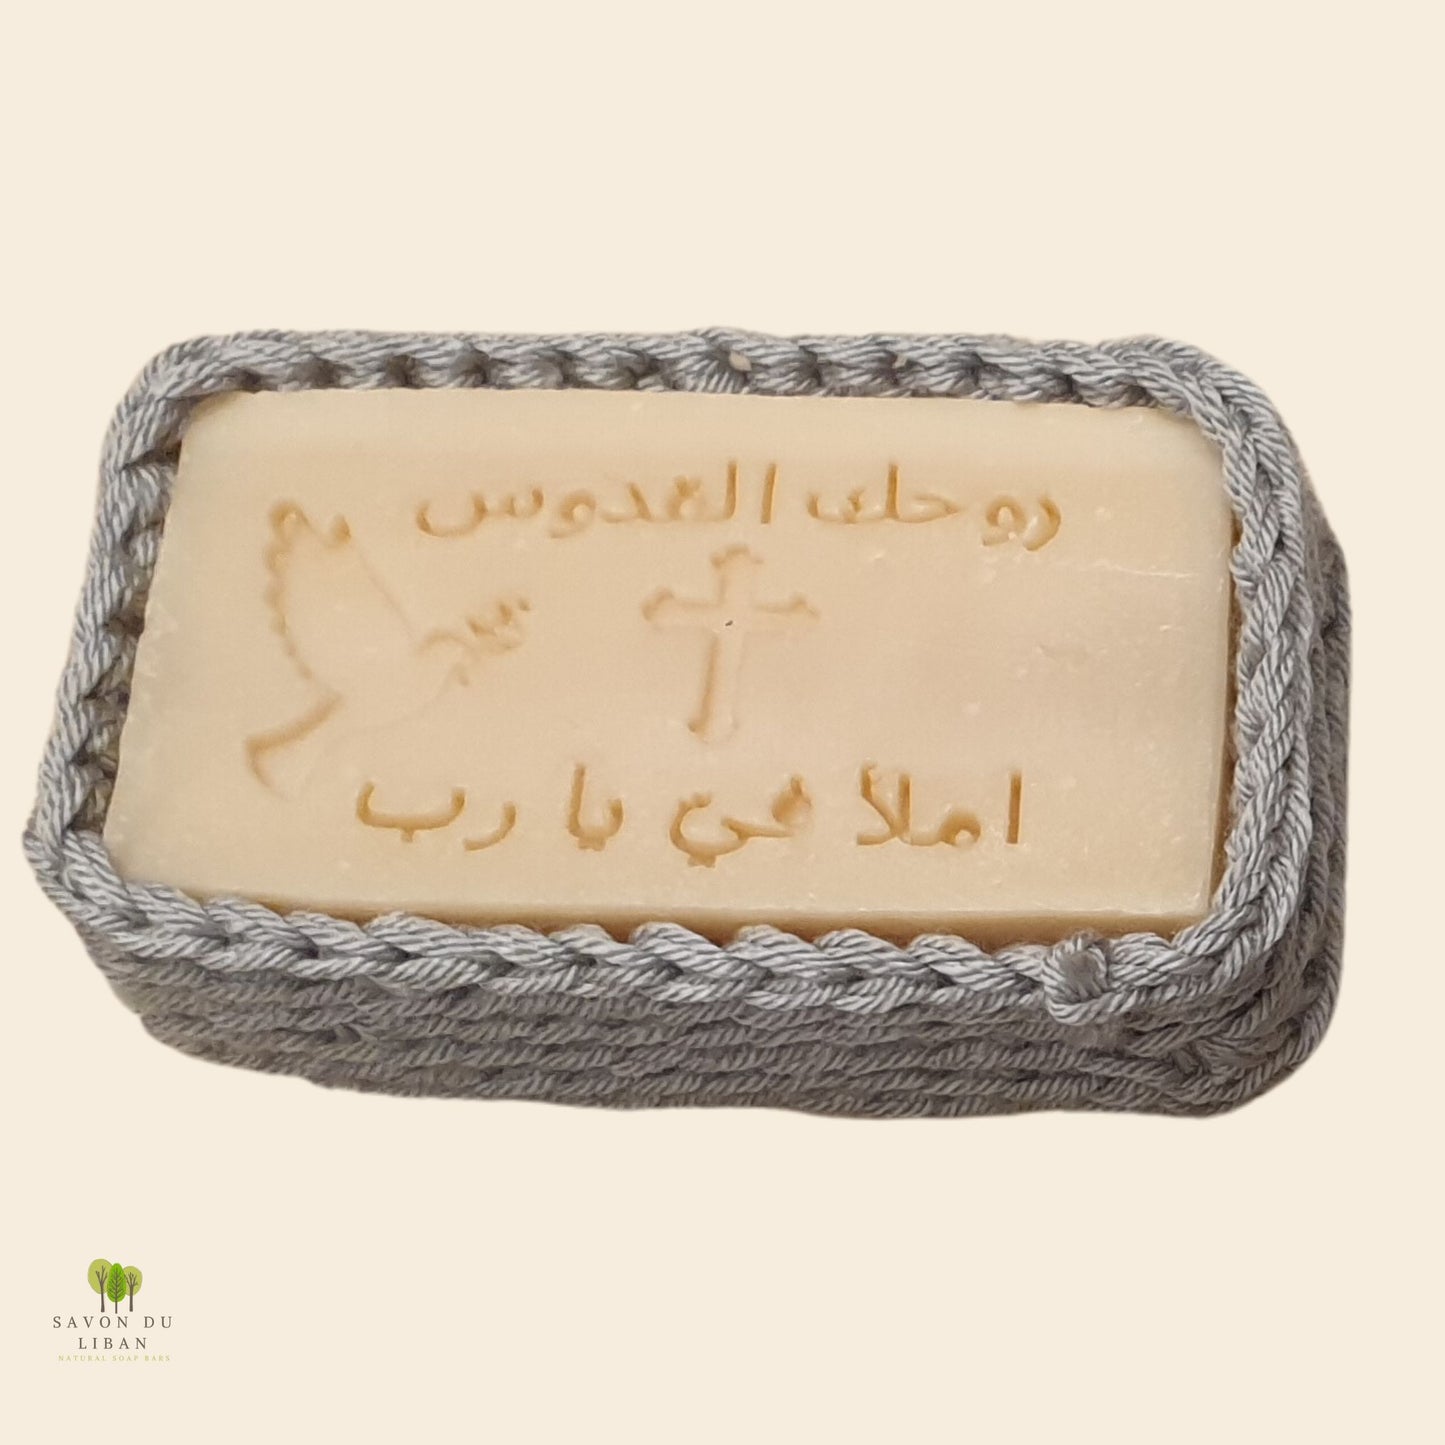 روحك القدوس
املأ في يا رب
SAVON DU
LIBAN
NATURAL SOAP BARS